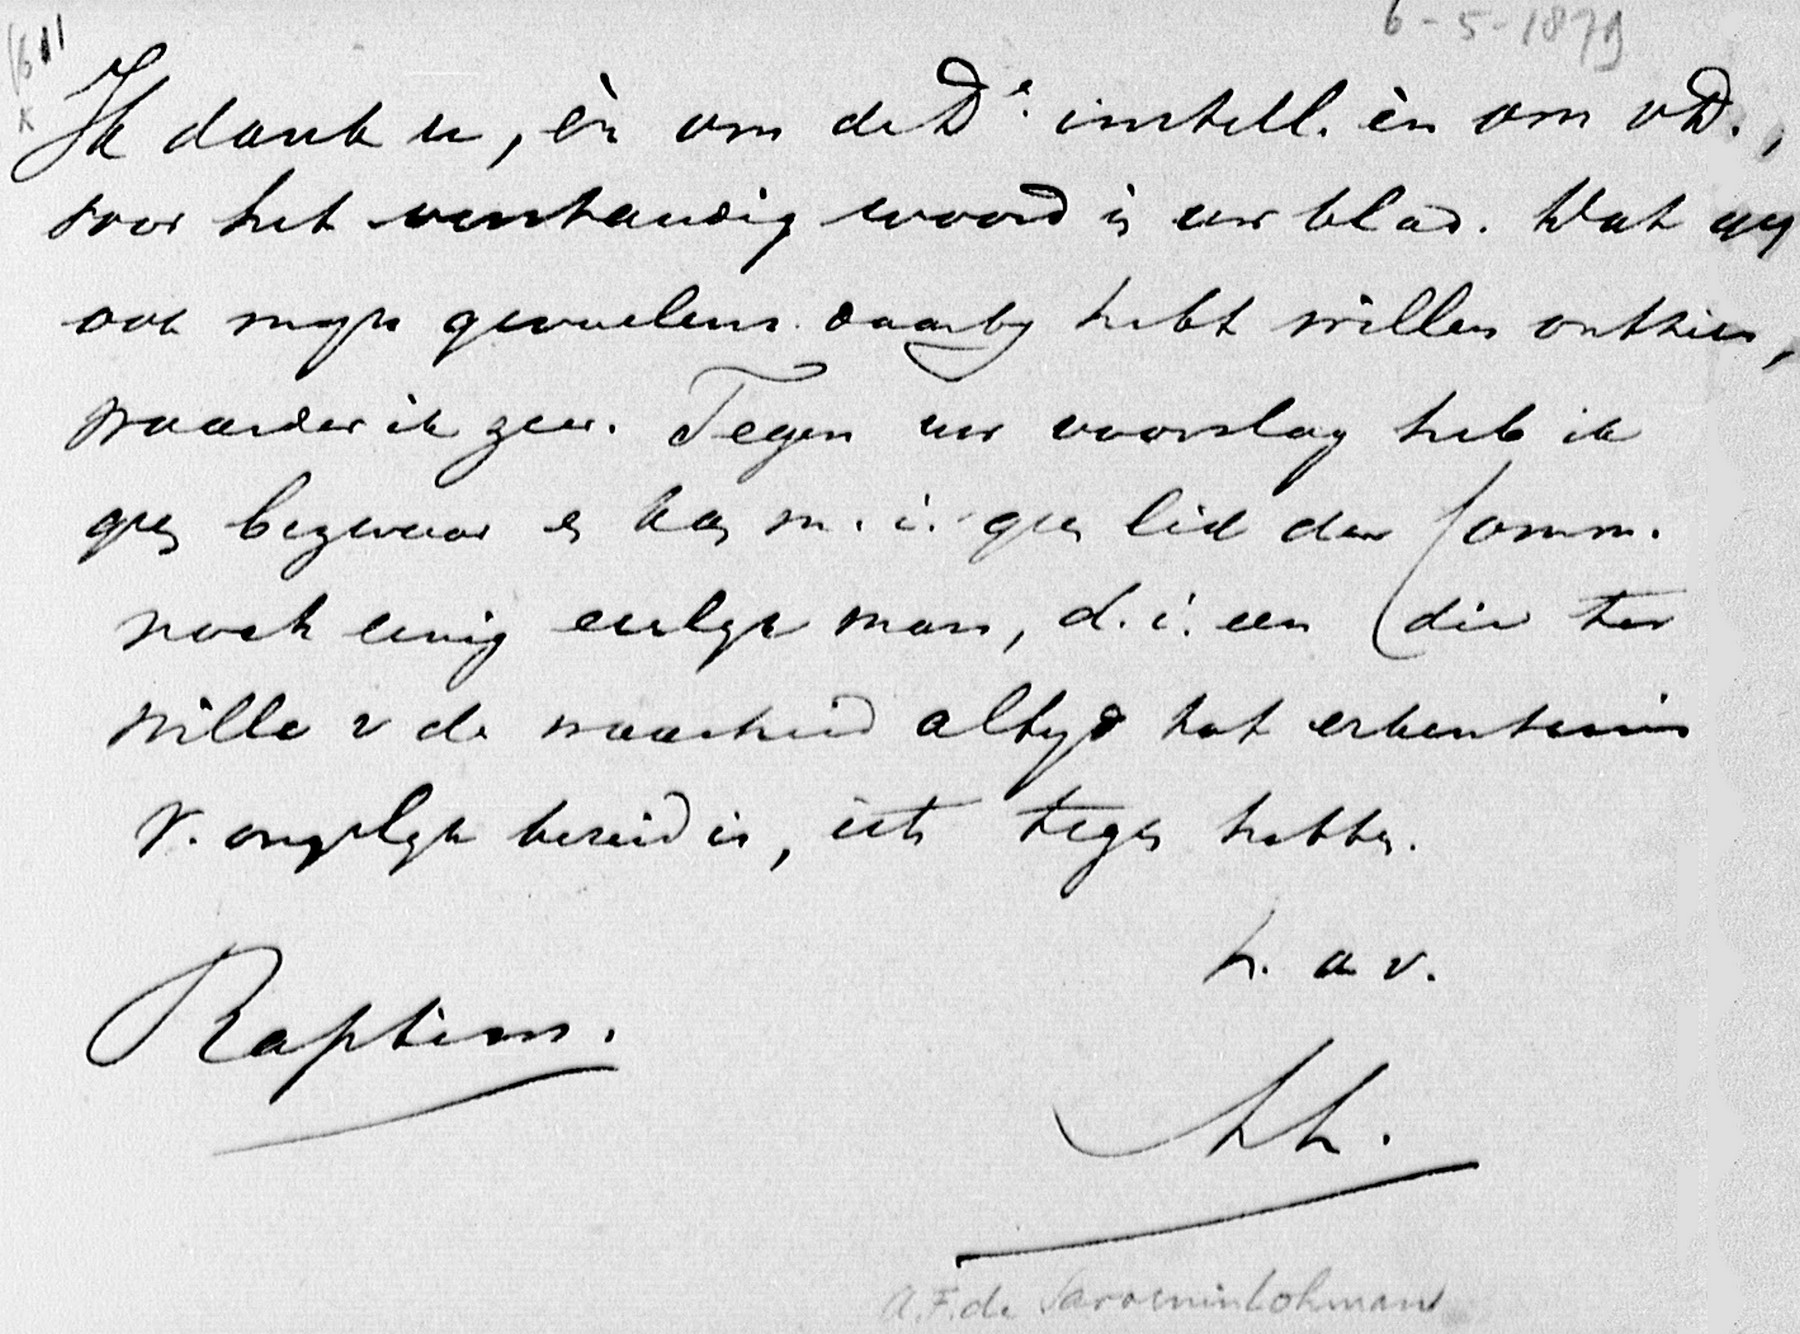 6-5-1879
Ik dank u, èn om de De. instell. èn om vD.,
voor het verstandig woord in uw blad. Wat gij
ook mijn gevoelens daarbij hebt willen ontzien,
waardeer ik zeer. Tegen uw voorslag heb ik
geen bezwaar en kan m. i. geen lid der Comm.
noch eenig eerlijk man, d. i. een die ter
wille v de waarheid altijd tot erkentenis
v. ongelijk bereid is, iets tegen hebben.
t. a v.
Raptim.
A.F. de Savornin Lohman